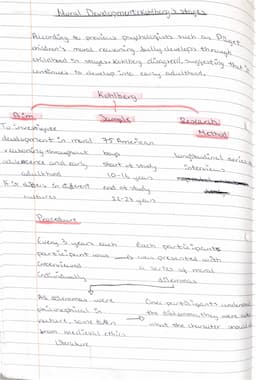 Moral Development: Kohlberg's stages
According to previous psychologists such as Piaget
children's moral reasoning fully develops through
childhood in stages. Kohlberg disagreed, suggesting that it
continues to develop into early adulthood.
Kohlberg
Aim
To investigate
development in moral
reasoning throughout
adolescence and early
adulthood
If it differs in different
cultures
Sample
75 American
boys
start of study
10-16 years
end of study
22-28 years
Research
Method
longitudinal series of
interviews
Procedure
Every 3 years each
participant was
interviewed
individually
Each participants
was presented with
a series of moral
dilemmas
As dilemmas were
philosophical in
nature, some taken
from medieval ethics
literature
Once participants understood
the dilemma, they were asked
what the character should